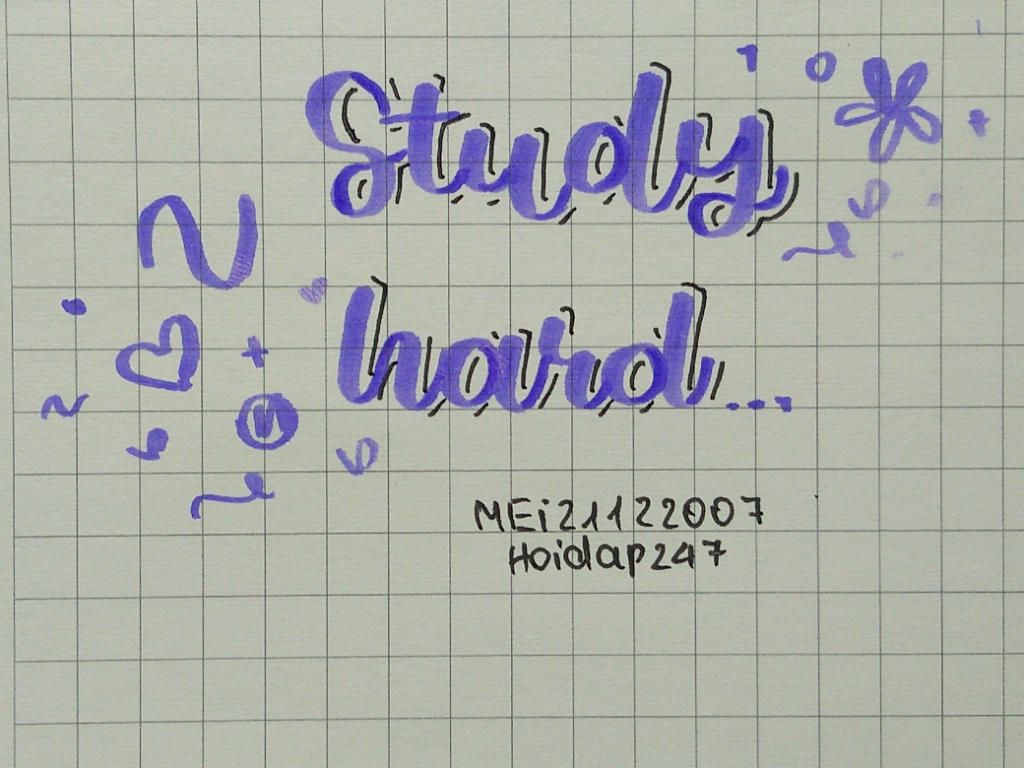 Study
hard...
MEi21122007
Hoidap247